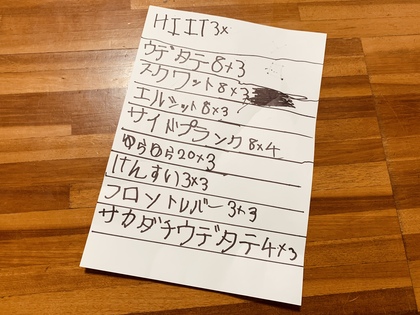 HIIT3×
ウデタテ8×3
スクワット8×3
エルシット8×3
サイドプランク8×4
ゆらゆら20×3
けんすい3×3
フロントレバー3×3
サカダチウデタテ4×3